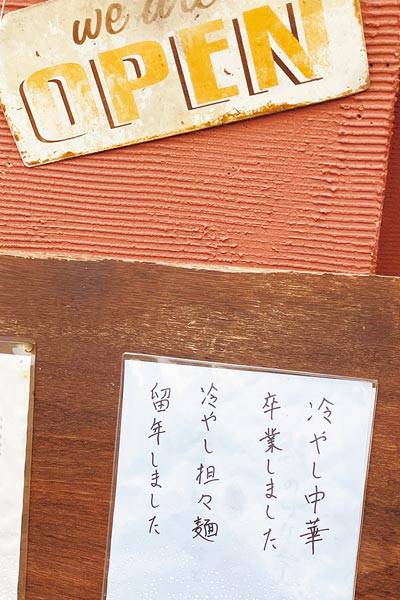 we are
OPEN
冷やし中華
卒業しました
冷やし担々麺
留年しました